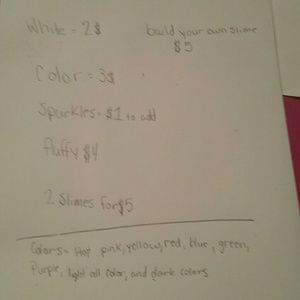 White = 2$
build your own slime
$5
Color = 3$
Sparkles = $1 to add
fluffy $4
2 Slimes for $5
Colors = Hot pink, yellow, red, blue, green,
Purple, light all color, and dark colors